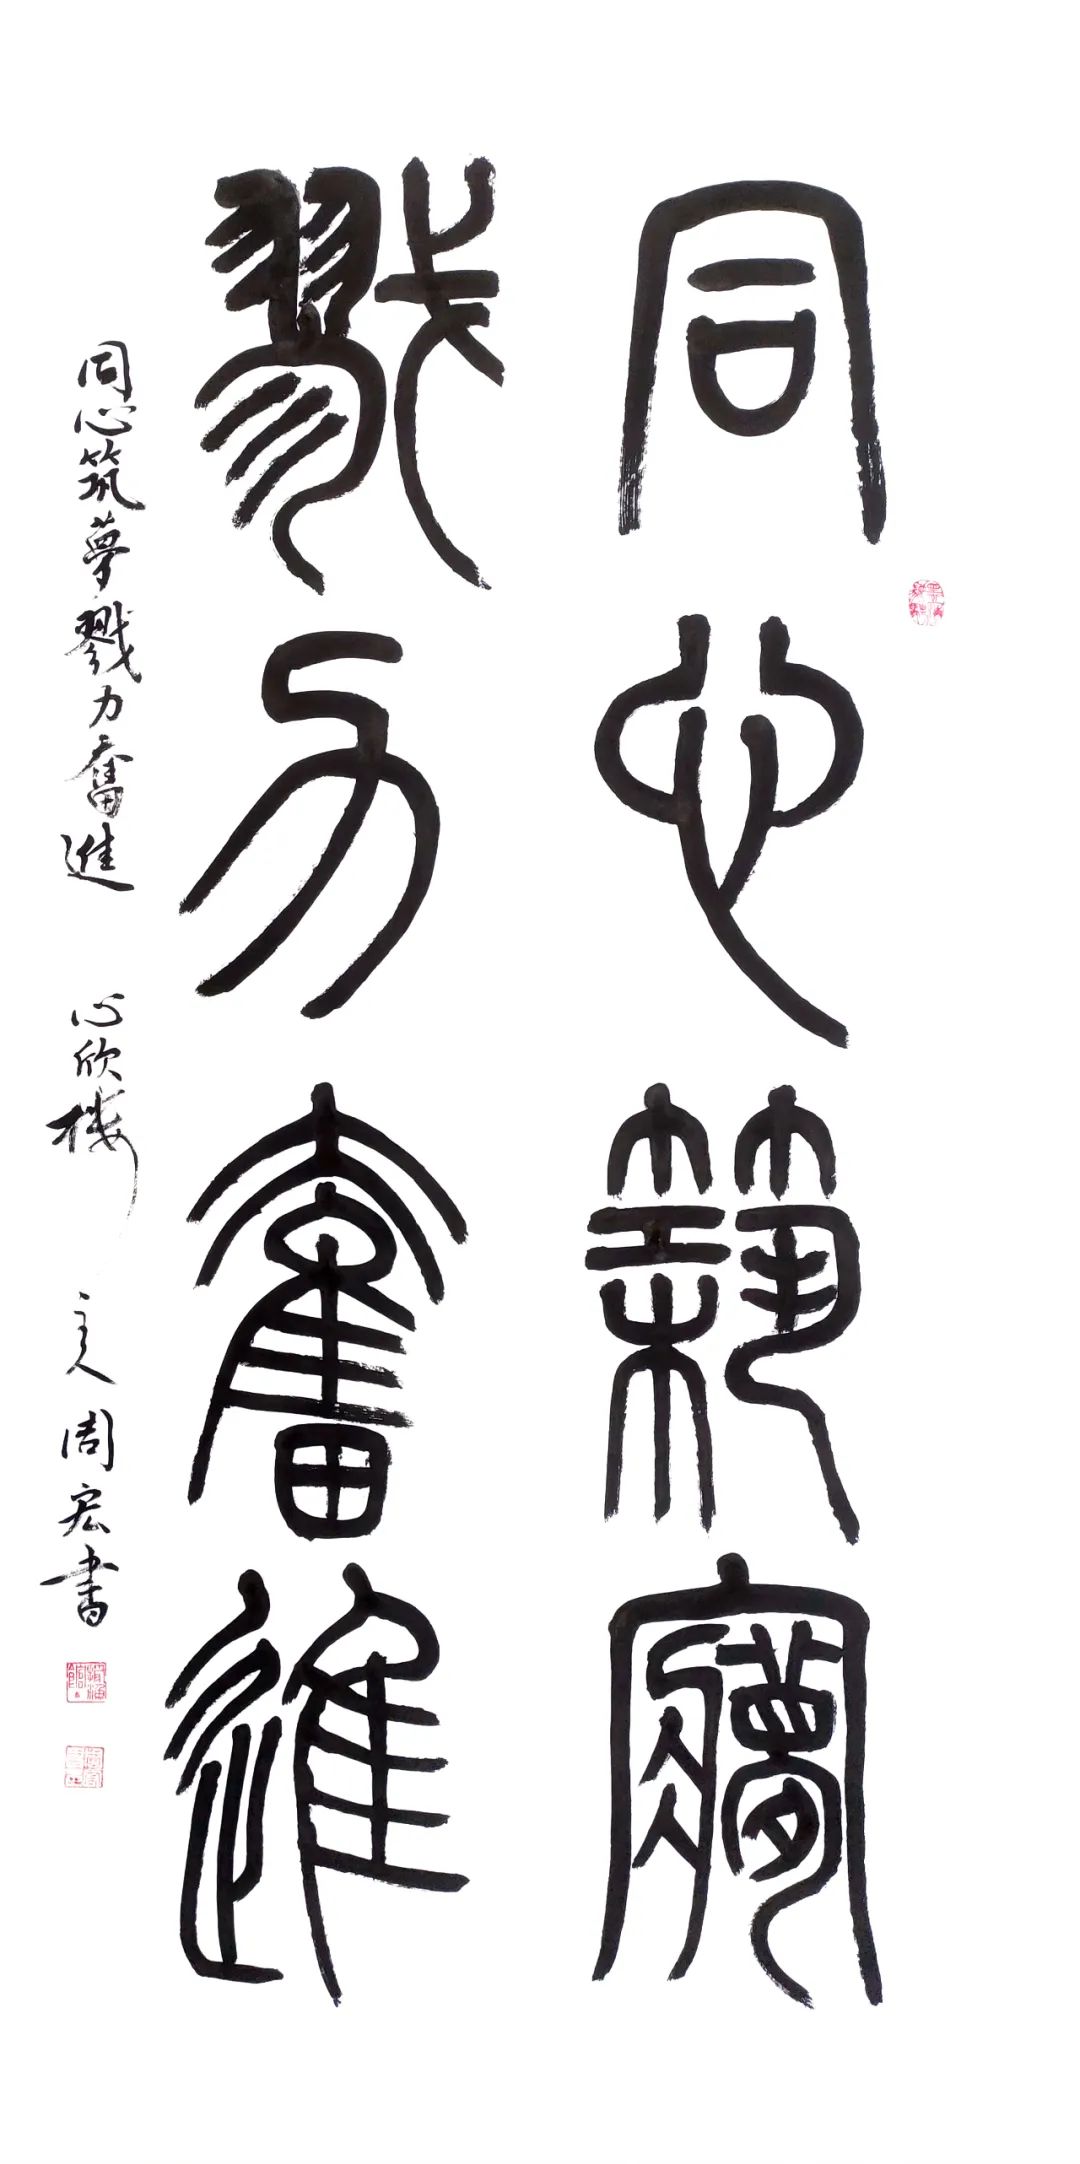 同心築夢
戮力奮進
同心筑夢戮力奮進 心欣楼主人周宏書